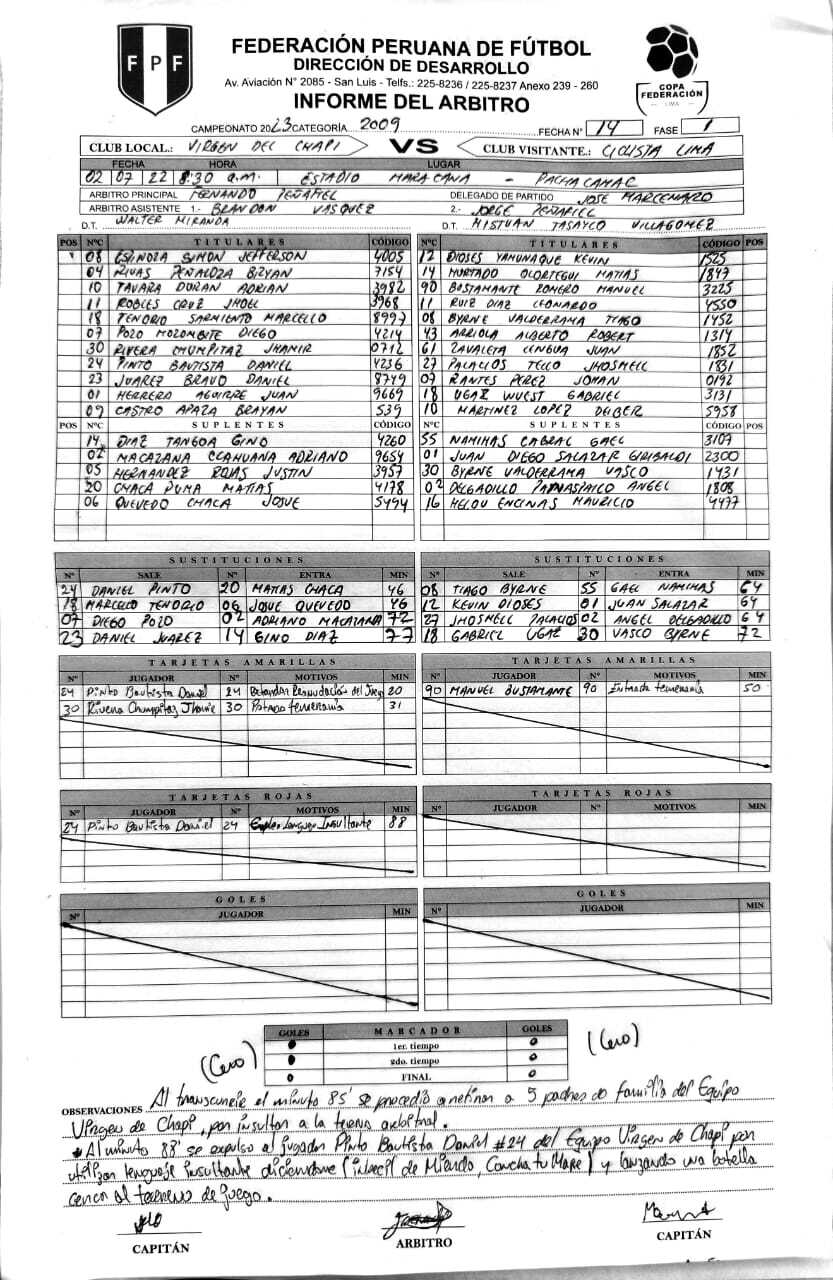 FPF
FEDERACIÓN PERUANA DE FÚTBOL
DIRECCIÓN DE DESARROLLO
Av. Aviación N° 2085 - San Luis - Telfs.: 225-8236 / 225-8237 Anexo 239 - 260
INFORME DEL ARBITRO
COPA FEDERACIÓN LIMA
CAMPEONATO 2023 CATEGORÍA 2009 FECHA N° 14 FASE 1
CLUB LOCAL.: VIRGEN DEL CHAPI VS CLUB VISITANTE.: CICLISTA LIMA
FECHA HORA LUGAR
02 07 22 8:30 a.m. ESTADIO MARACANA - PACHACAMAC
ARBITRO PRINCIPAL FERNANDO PEÑAFIEL DELEGADO DE PARTIDO JOSE MARCENARO
ARBITRO ASISTENTE 1.- BRANDON VASQUEZ 2.- JORGE PEÑAFIEL
D.T. WALTER MIRANDA D.T. MISTUAN TASAYCO VILLAGOMEZ
POS N°C TITULARES CÓDIGO N°C TITULARES CÓDIGO POS
08 ESPINOZA SIMON JEFFERSON 4005 12 DIOSES YAMUNAQUE KEVIN 1525
04 RIVAS PEÑALOZA BRYAN 7154 14 HURTADO OLORTEGUI MATIAS 1847
10 TAVARA DURAN ADRIAN 3982 90 BUSTAMANTE ROMERO MANUEL 3225
11 ROBLES CRUZ JHOEL 3968 11 RUIZ DIAZ LEONARDO 4550
18 TENORIO SARMIENTO MARCELLO 8997 08 BYRNE VALDERRAMA TIAGO 1452
07 POZO MOZOMBITE DIEGO 4214 43 ARRIOLA ALBERTO ROBERT 1314
30 RIVERA CHUMPITAZ JHAMIR 0712 61 ZAVALETA LENGUA JUAN 1852
24 PINTO BAUTISTA DANIEL 4236 27 PALACIOS TELLO JHOSMELL 1831
23 JUAREZ BRAVO DANIEL 8749 07 RANTES PEREZ JOHAN 0192
01 HERRERA AGUIRRE JUAN 9669 18 UGAZ WUEST GABRIEL 3131
09 CASTRO APAZA BRAYAN 539 10 MARTINEZ LOPEZ DEIBER 5958
POS N°C SUPLENTES CÓDIGO N°C SUPLENTES CÓDIGO POS
14 DIAZ TANGOA GINO 4260 55 NAMIHAS CABRAL GAEL 3107
02 MACAZANA CCAHUANA ADRIANO 9654 01 JUAN DIEGO SALAZAR GRIBALDI 2300
05 HERNANDEZ ROJAS JUSTIN 3957 30 BYRNE VALDERRAMA VASCO 1431
20 CHACA PUMA MATIAS 4178 02 DELGADILLO ANGEL 1808
06 QUEVEDO CHACA JOSUE 5494 16 HELOU ENCINAS MAURICIO 4477
SUSTITUCIONES SUSTITUCIONES
N° SALE N° ENTRA MIN N° SALE N° ENTRA MIN
24 DANIEL PINTO 20 MATIAS CHACA 46 08 TIAGO BYRNE 55 GAEL NAMIHAS 64
18 MARCELLO TENORIO 06 JOSUE QUEVEDO 46 12 KEVIN DIOSES 01 JUAN SALAZAR 64
07 DIEGO POZO 02 ADRIANO MACAZANA 72 27 JHOSMELL PALACIOS 02 ANGEL DELGADILLO 64
23 DANIEL JUAREZ 14 GINO DIAZ 77 18 GABRIEL UGAZ 30 VASCO BYRNE 72
TARJETAS AMARILLAS TARJETAS AMARILLAS
N° JUGADOR N° MOTIVOS MIN N° JUGADOR N° MOTIVOS MIN
24 Pinto Bautista Daniel 24 Retardar Reanudación del Juego 20 90 MANUEL BUSTAMANTE 90 Entrada temeraria 50
30 Rivera Chumpitaz Jhamir 30 Patada temeraria 31
TARJETAS ROJAS TARJETAS ROJAS
N° JUGADOR N° MOTIVOS MIN N° JUGADOR N° MOTIVOS MIN
24 Pinto Bautista Daniel 24 Emplear Lenguaje Insultante 88
GOLES GOLES
N° JUGADOR MIN N° JUGADOR MIN
GOLES MARCADOR GOLES
1er. tiempo 0
(Cero) 2do. tiempo 0 (Cero)
0 FINAL 0
OBSERVACIONES Al transcurrir el minuto 85' se procedió a retirar a 5 padres de familia del Equipo
Virgen de Chapi, por insultar a la terna arbitral.
* Al minuto 88' se expulso al jugador Pinto Bautista Daniel #24 del Equipo Virgen de Chapi por
utilizar lenguaje insultante diciendome (imbecil de Mierda, Concha tu Mare) y lanzando una botella
cerca al terreno de juego.
CAPITÁN ARBITRO CAPITÁN